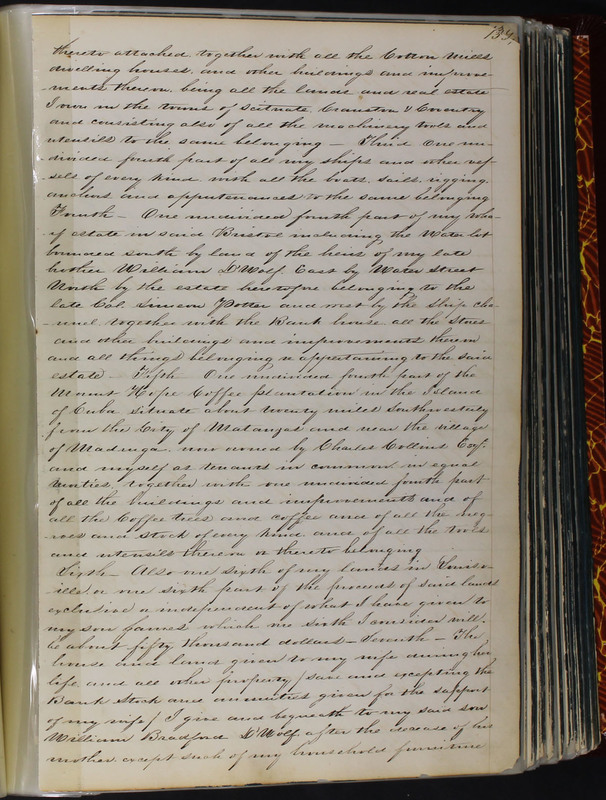 139
thereto attached together with all the Cotton Mills
dwelling houses, and other buildings and improve-
ments thereon, being all the lands and real estate
I own in the towns of Scituate, Cranston & Coventry
and consisting also of all the machinery tools and
utensils to the same belonging — Third One un-
divided fourth part of all my ships and other ves-
sels of every kind with all the boats, sails, rigging,
anchors and appurtenances to the same belonging
Fourth — One undivided fourth part of my wha-
rf estate in said Bristol including the Water lot
bounded south by land of the heirs of my late
brother William D'Wolf, East by Water Street
North by the estate heretofore belonging to the
late Col. Simeon Potter and west by the Ship cha-
nnel, together with the Bank house, all the Stores
and other buildings and improvements thereon
and all things belonging or appertaining to the said
estate — Fifth — One undivided fourth part of the
Mount Hope Coffee plantation in the Island
of Cuba situate about twenty miles Southwesterly
from the City of Matanzas and near the village
of Madruga, now owned by Charles Collins Esq.
and myself as tenants in common in equal
together with one undivided fourth part
of all the buildings and improvements and of
all the Coffee trees and coffee and of all the neg-
roes and stock of every kind and of all the tools
and utensils thereon or thereto belonging
Sixth — Also one sixth of my lands in
or one sixth part of the proceeds of said lands
exclusive or independent of what I have given to
my son James which one sixth I consider will
be about fifty thousand dollars — Seventh — The
house and land given to my wife during her
life and all other property / save and excepting the
Bank Stock and annuities given for the support
of my wife / I give and bequeath to my said son
William Bradford D'Wolf after the decease of his
mother, except such of my household furniture